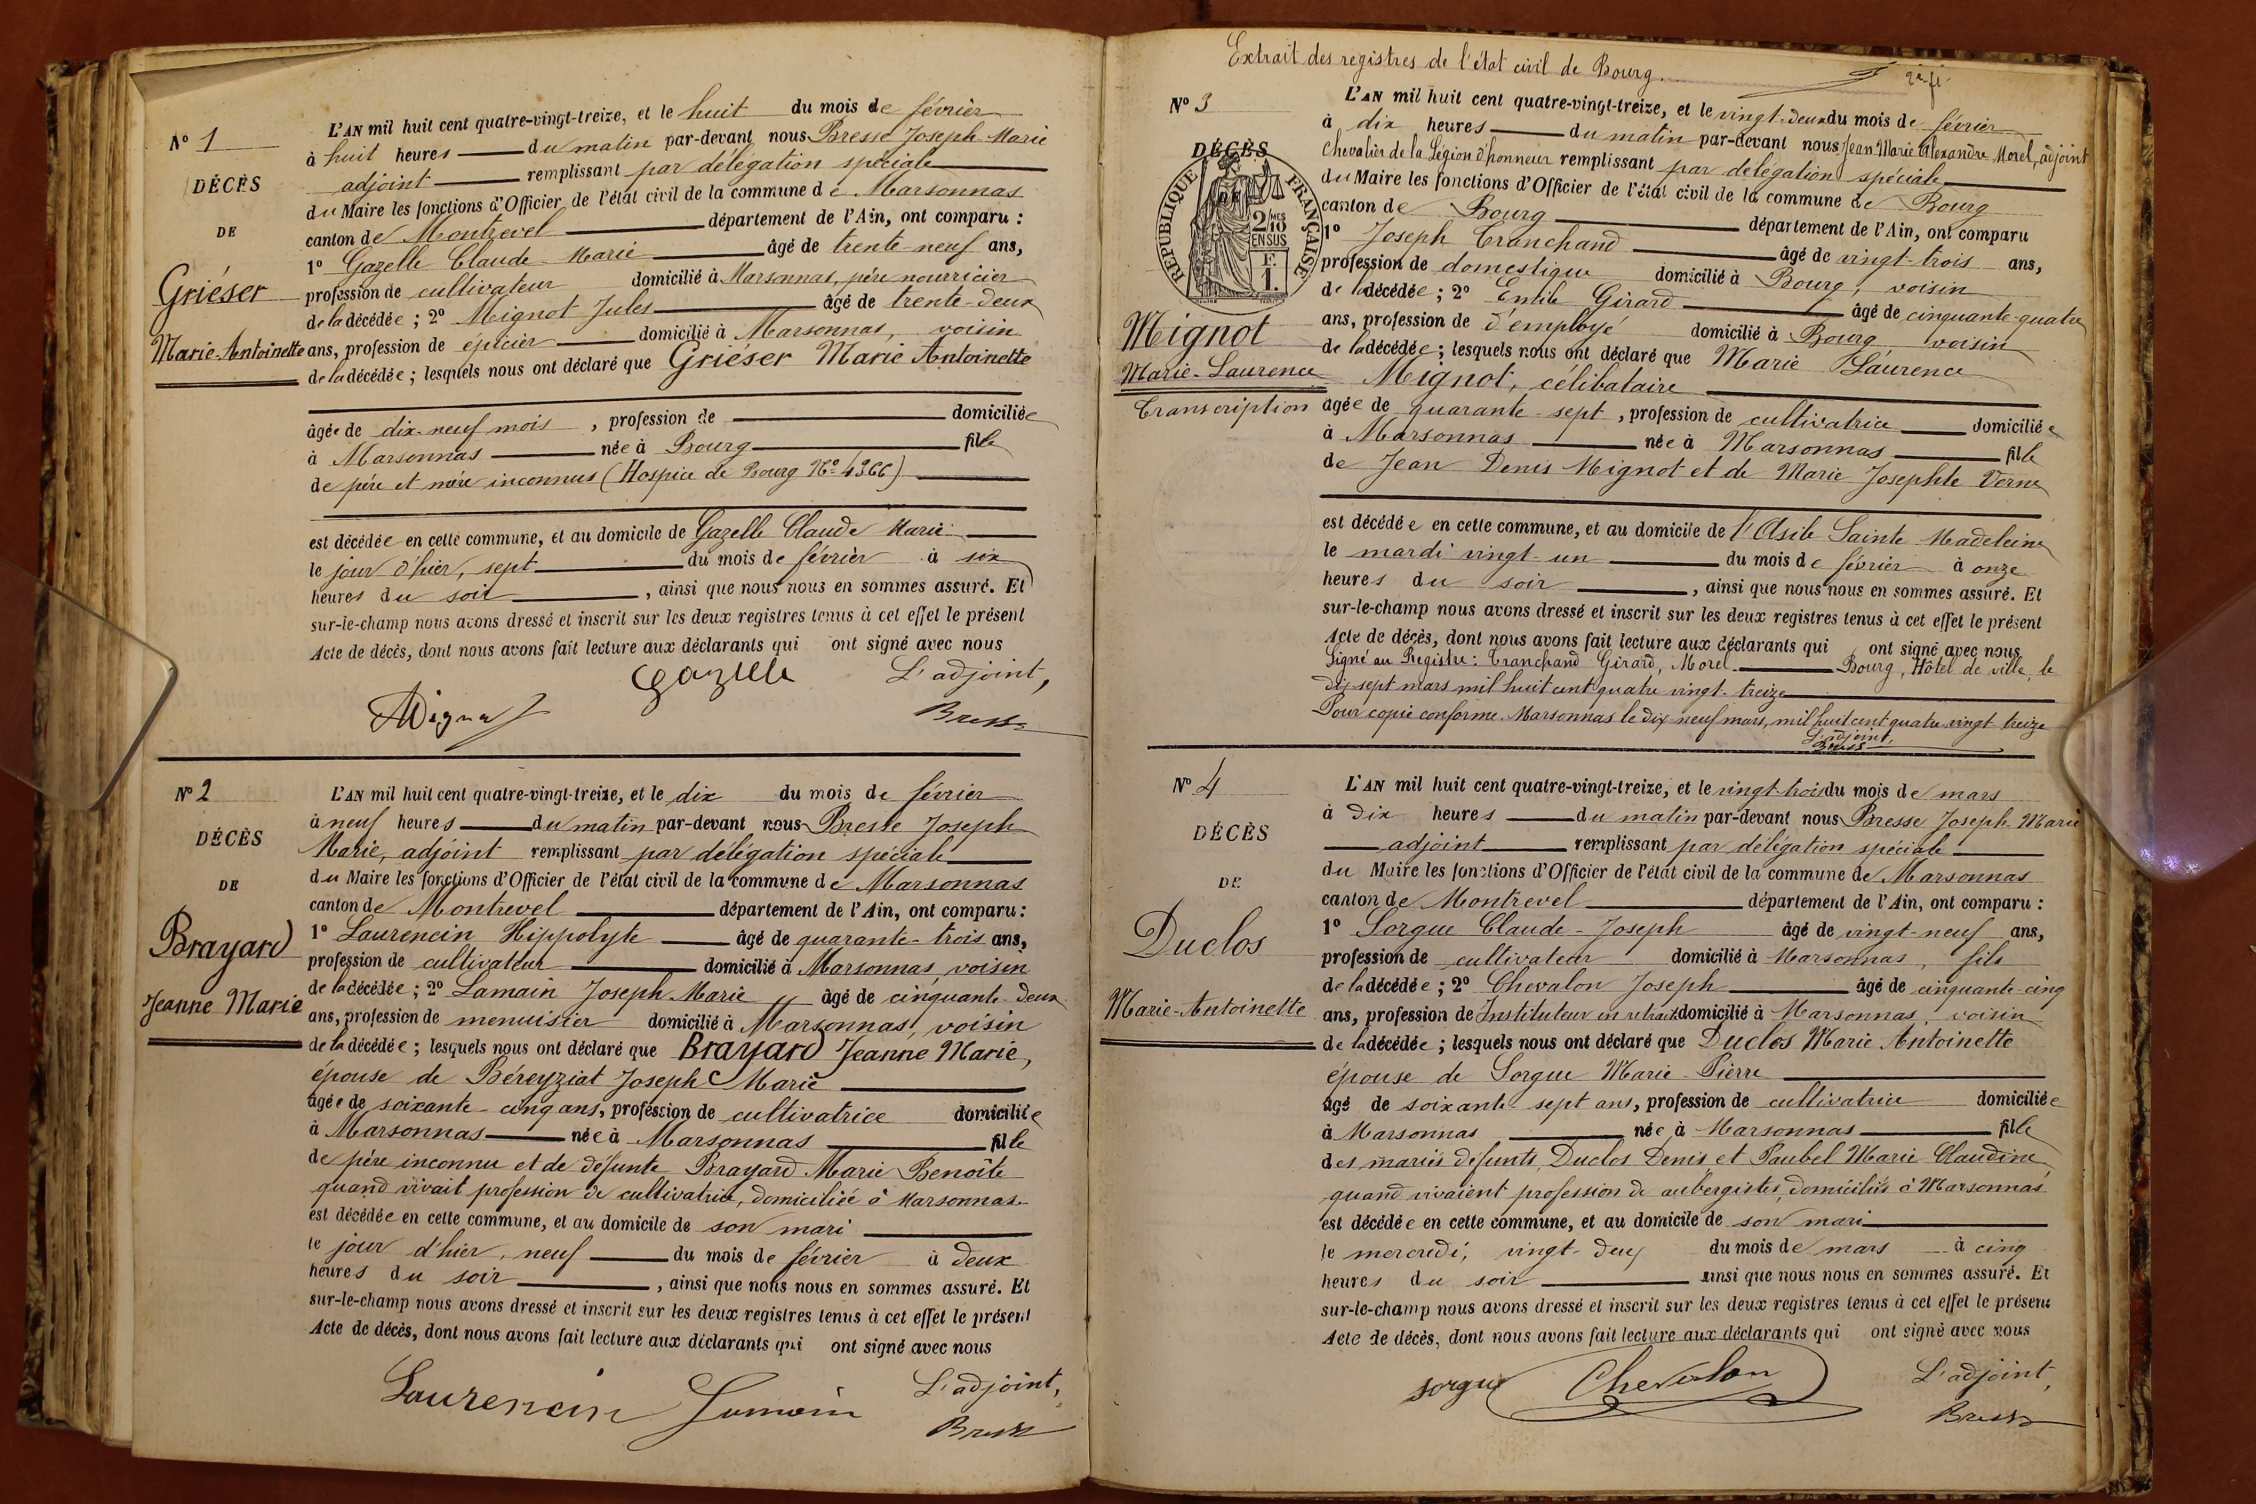 N° 1
DÉCÈS
DE
Griéser
Marie-Antoinette
L'AN mil huit cent quatre-vingt-treize, et le huit du mois de février
à huit heures du matin par-devant nous Bresse Joseph Marie
adjoint remplissant par délégation spéciale
du Maire les fonctions d'Officier de l'état civil de la commune de Marsonnas
canton de Montrevel département de l'Ain, ont comparu :
1° Gazelle Claude Marie âgé de trente-neuf ans,
profession de cultivateur domicilié à Marsonnas, père nourricier
de la décédée ; 2° Mignot Jules âgé de trente-deux
ans, profession de épicier domicilié à Marsonnas, voisin
de la décédée ; lesquels nous ont déclaré que Griéser Marie Antoinette
âgée de dix-neuf mois, profession de domiciliée
à Marsonnas née à Bourg fille
de père et mère inconnus (Hospice de Bourg N° 4366)
est décédée en cette commune, et au domicile de Gazelle Claude Marie
le jour d'hier, sept du mois de février à six
heures du soir, ainsi que nous nous en sommes assuré. Et
sur-le-champ nous avons dressé et inscrit sur les deux registres tenus à cet effet le présent
Acte de décès, dont nous avons fait lecture aux déclarants qui ont signé avec nous
Gazelle L'adjoint,
Mignot Bresse
N° 2
DÉCÈS
DE
Brayard
Jeanne Marie
L'AN mil huit cent quatre-vingt-treize, et le dix du mois de février
à neuf heures du matin par-devant nous Bresse Joseph
Marie, adjoint remplissant par délégation spéciale
du Maire les fonctions d'Officier de l'état civil de la commune de Marsonnas
canton de Montrevel département de l'Ain, ont comparu :
1° Laurencin Hippolyte âgé de quarante-trois ans,
profession de cultivateur domicilié à Marsonnas voisin
de la décédée ; 2° Lamain Joseph Marie âgé de cinquante-deux
ans, profession de menuisier domicilié à Marsonnas, voisin
de la décédée ; lesquels nous ont déclaré que Brayard Jeanne Marie,
épouse de Béreyziat Joseph Marie
âgée de soixante-cinq ans, profession de cultivatrice domiciliée
à Marsonnas née à Marsonnas fille
de père inconnu et de défunte Brayard Marie Benoîte
quand vivait profession de cultivatrice, domiciliée à Marsonnas
est décédée en cette commune, et au domicile de son mari
le jour d'hier, neuf du mois de février à deux
heures du soir, ainsi que nous nous en sommes assuré. Et
sur-le-champ nous avons dressé et inscrit sur les deux registres tenus à cet effet le présent
Acte de décès, dont nous avons fait lecture aux déclarants qui ont signé avec nous
Laurencin Lamain L'adjoint,
Bresse
Extrait des registres de l'état civil de Bourg.
N° 3
DÉCÈS
DE
RÉPUBLIQUE FRANÇAISE
2/10 EN SUS
Mignot
Marie-Laurence
Transcription
L'AN mil huit cent quatre-vingt-treize, et le vingt-deux du mois de février
à dix heures du matin par-devant nous Jean Marie Alexandre Morel, adjoint
Chevalier de la Légion d'honneur remplissant par délégation spéciale
du Maire les fonctions d'Officier de l'état civil de la commune de Bourg
canton de Bourg département de l'Ain, ont comparu
1° Joseph Tranchand âgé de vingt-trois ans,
profession de domestique domicilié à Bourg, voisin
de la décédée ; 2° Emile Girard âgé de cinquante-quatre
ans, profession de d'employé domicilié à Bourg voisin
de la décédée ; lesquels nous ont déclaré que Marie Laurence
Mignot, célibataire
âgée de quarante-sept, profession de cultivatrice domiciliée
à Marsonnas née à Marsonnas fille
de Jean Denis Mignot et de Marie Josephte Verne
est décédée en cette commune, et au domicile de l'Asile Sainte Madeleine
le mardi vingt-un du mois de février à onze
heures du soir, ainsi que nous nous en sommes assuré. Et
sur-le-champ nous avons dressé et inscrit sur les deux registres tenus à cet effet le présent
Acte de décès, dont nous avons fait lecture aux déclarants qui ont signé avec nous
Signé au Registre : Tranchand Girard, Morel. Bourg, Hôtel de ville, le
dix-sept mars mil huit cent quatre vingt-treize
Pour copie conforme. Marsonnas le dix neuf mars, mil huit cent quatre vingt treize
L'adjoint,
Bresse
N° 4
DÉCÈS
DE
Duclos
Marie-Antoinette
L'AN mil huit cent quatre-vingt-treize, et le vingt-trois du mois de mars
à dix heures du matin par-devant nous Bresse Joseph Marie
adjoint remplissant par délégation spéciale
du Maire les fonctions d'Officier de l'état civil de la commune de Marsonnas
canton de Montrevel département de l'Ain, ont comparu :
1° Sorgue Claude-Joseph âgé de vingt-neuf ans,
profession de cultivateur domicilié à Marsonnas, fils
de la décédée ; 2° Chevalon Joseph âgé de cinquante-cinq
ans, profession de Instituteur en retraite domicilié à Marsonnas, voisin
de la décédée ; lesquels nous ont déclaré que Duclos Marie Antoinette
épouse de Sorgue Marie-Pierre
âgé de soixante-sept ans, profession de cultivatrice domiciliée
à Marsonnas née à Marsonnas fille
des mariés défunts, Duclos Denis et Paubel Marie Claudine
quand vivaient profession de aubergistes, domiciliés à Marsonnas
est décédée en cette commune, et au domicile de son mari
le mercredi, vingt-deux du mois de mars à cinq
heures du soir ainsi que nous nous en sommes assuré. Et
sur-le-champ nous avons dressé et inscrit sur les deux registres tenus à cet effet le présent
Acte de décès, dont nous avons fait lecture aux déclarants qui ont signé avec nous
Sorgue Chevalon L'adjoint,
Bresse